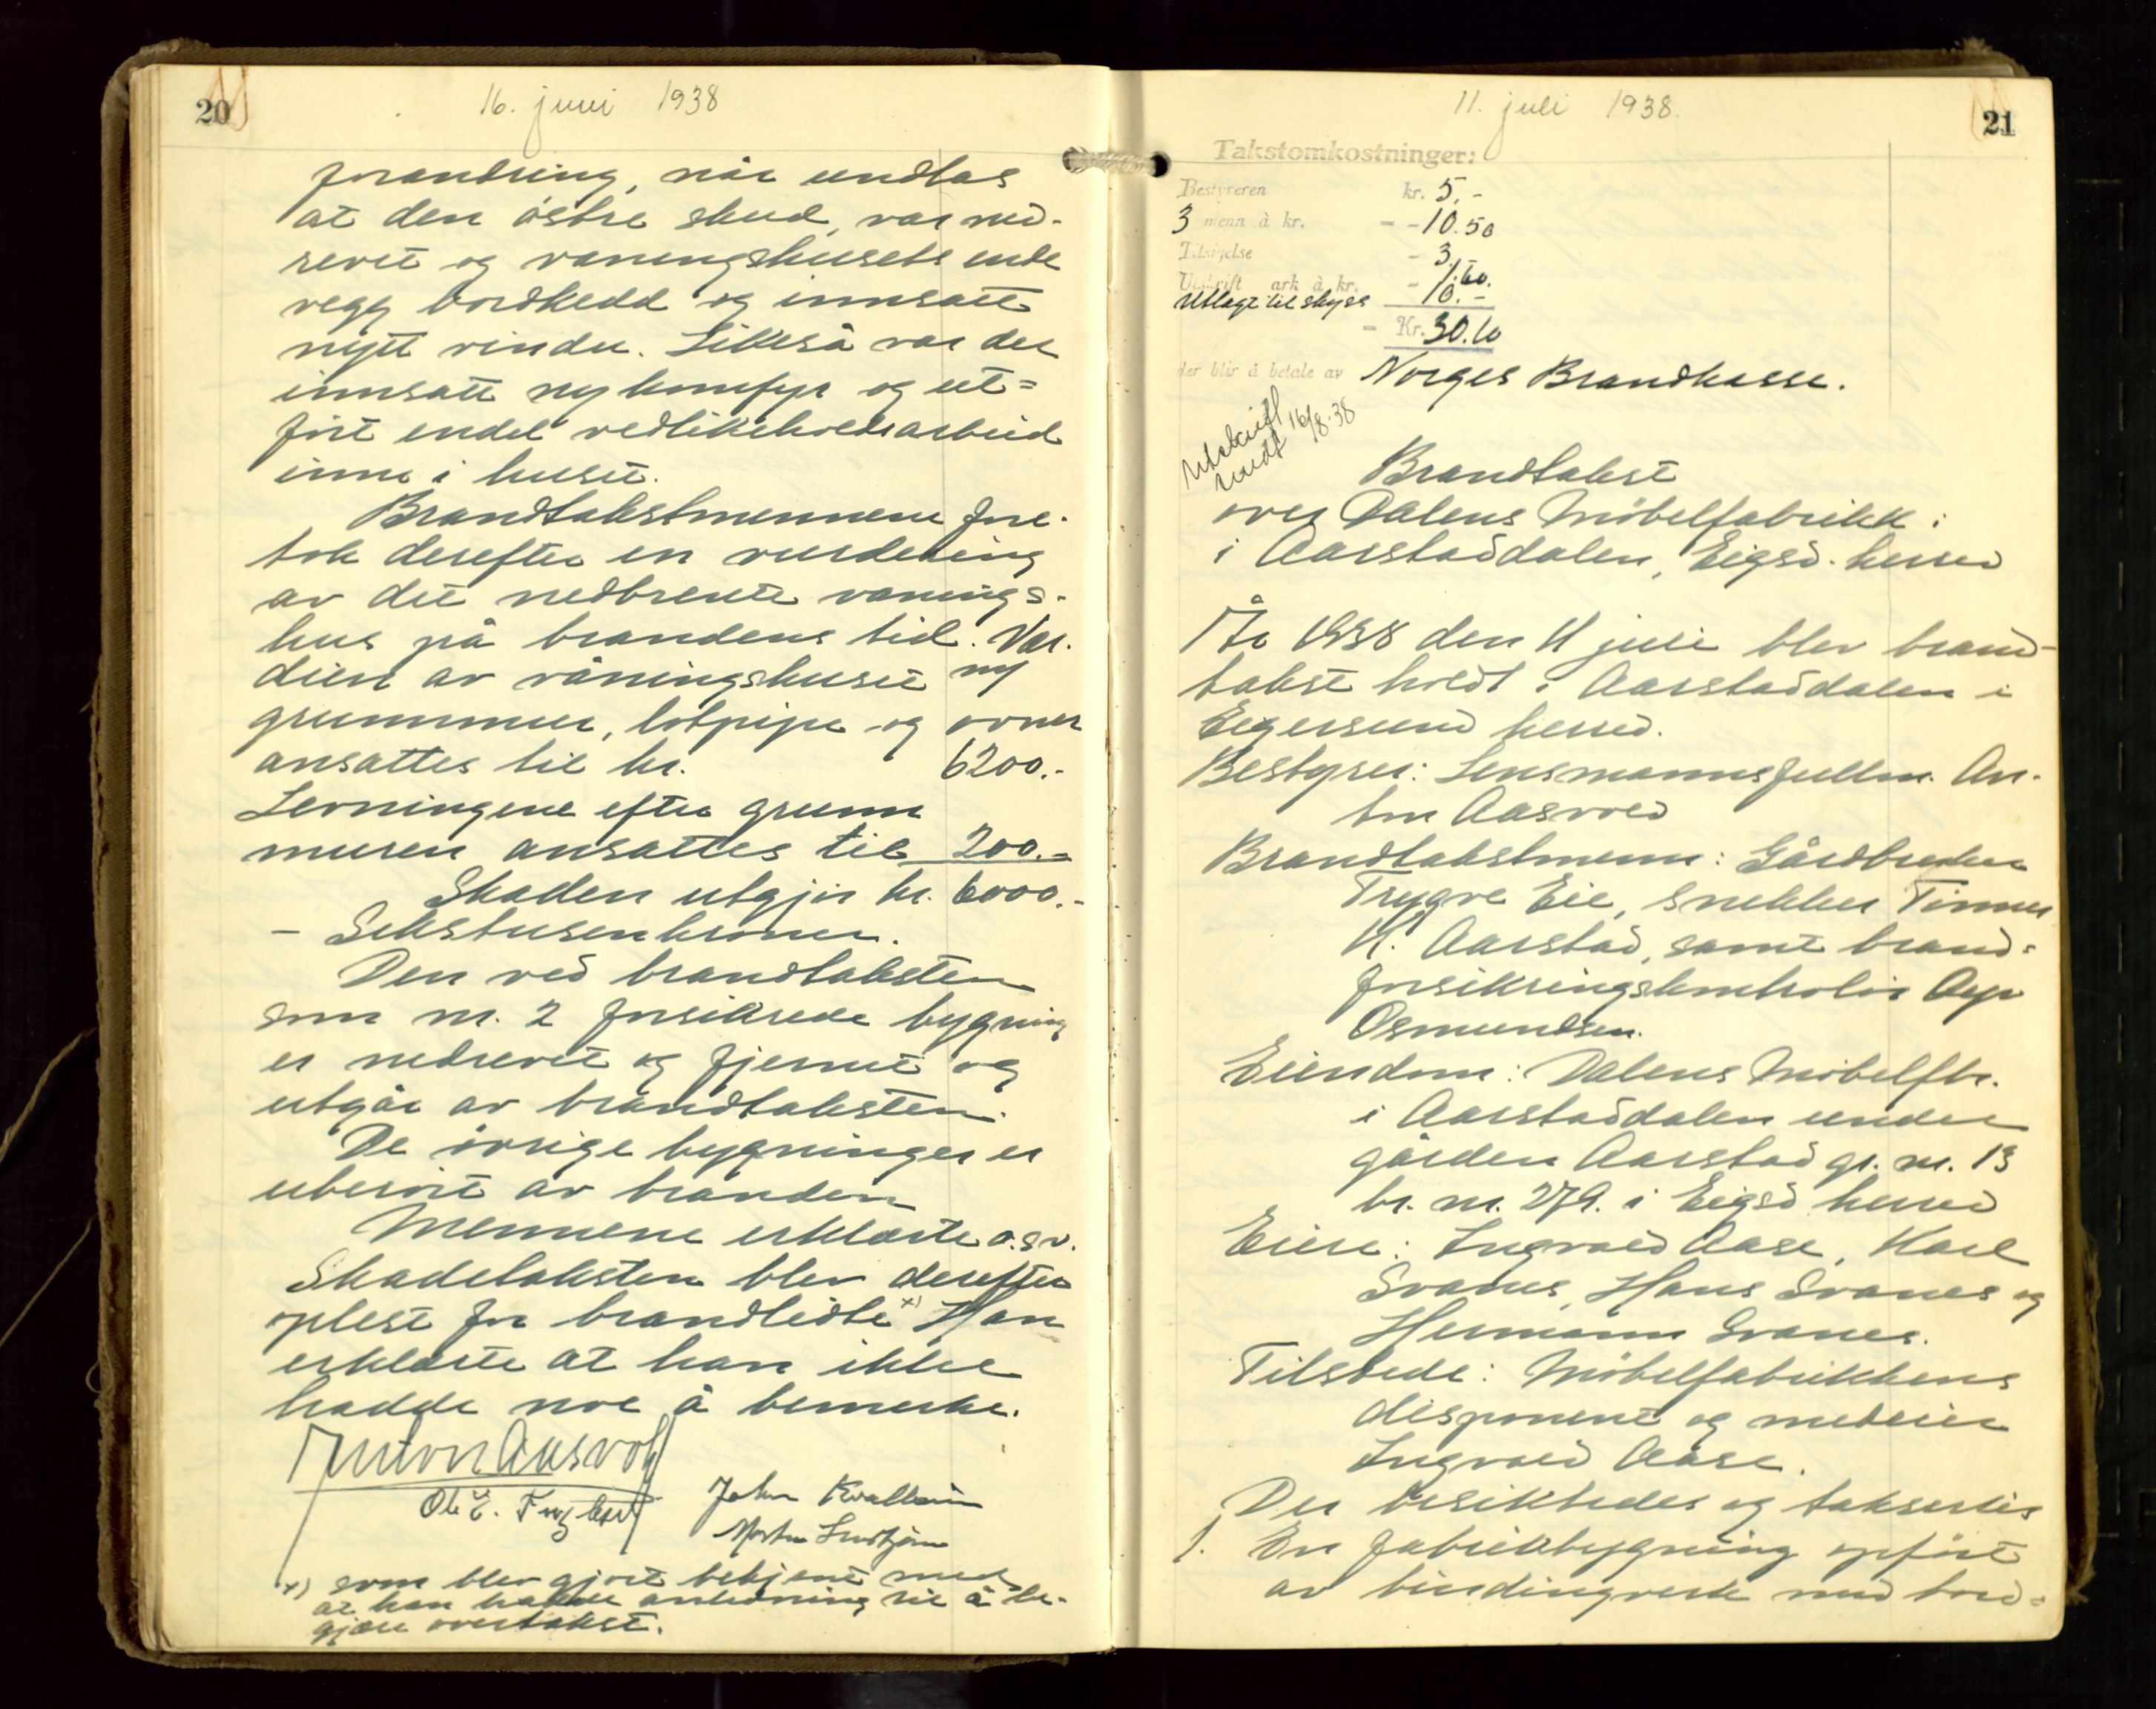 20
16. juni 1938
forandring, når undtas
at den östre skud, var ned-
revet og vaningshusets ende
vegg bordkledd og innsatt
nytt vindu. Likeså var der
innsatt ny komfyr og ut=
fört endel vedlikeholdsarbeid
inne i huset.
Brandtakstmennene fore-
tok derefter en vurdering
av det nedbrente vanings-
hus på brandens tid. Ver-
dien av våningshuset m/
grunnmur, lotpipe og ovner
ansattes til kr. 6200.-
Levningene efter grunn
muren ansattes til 200.-
Skaden utgjör kr. 6000.-
- Sekstusenkroner.
Den ved brandtaksten
som nr. 2 forsikrede bygning
er nedrevet og fjernet og
utgår av brandtaksten.
De övrige bygninger er
uberört av branden
Mennene erklærte o.s.v.
Skadetaksten blev derefter
oplest for brandlidte x) Han
erklærte at han ikke
hadde noe å bemerke.
Anton Aasvold
Ole E.
John Kvalheim
x) som blev gjort bekjent med
at han hadde anledning til å be-
gjære overtakst.
21
11. juli 1938.
Takstomkostninger:
Bestyreren kr. 5.-
3 menn à kr. - -10.50
Tilsigelse - 3.-
Utskrift ark à kr. - 1.60.
Utlegg til skyss 10.-
= Kr. 30.10
der blir å betale av Norges Brandkasse.
Utskrift
sendt 16/8.38
Brandtakst
over Dalens Möbelfabrikk i
i Aarstaddalen, Eigsd. herred
År 1938 den 11 juli blev brand-
takst holdt i Aarstaddalen i
Eigersund herred.
Bestyrer: Lensmannsfullm. An-
ton Aasvold
Brandtakstmenn: Gårdbruker
Trygve Eie, snekker Tönnes
K. Aarstad, samt brand=
forsikringskontrolör Aye
Osmundsen.
Eiendom: Dalens Möbelfbr.
i Aarstaddalen under
gården Aarstad gr. nr. 13
br. nr. 279. i Eigsd herred
Eiere: Ingvald Aase, Karl
Svanes, Hans Svanes og
Hermann Svanes.
Tilstede: Möbelfabrikkens
disponent og medeier
Ingvald Aase.
Der besiktedes og takseredes
1. En fabrikkbygning opfört
av bindingverk med bord=